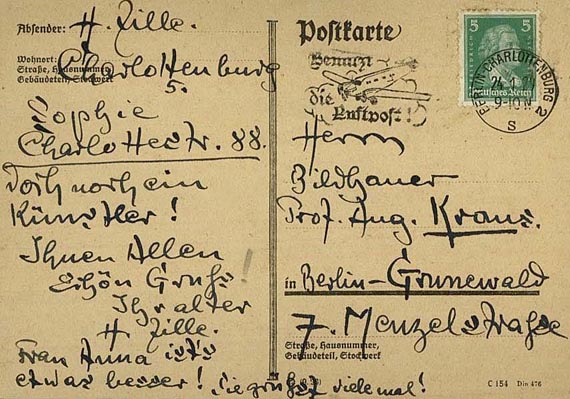 Absender: H. Zille.
Wohnort:
Straße, Hausnummer,
Gebäudeteil, Stockwerk
Charlottenburg
5.
Sophie
Charlottestr. 88.
doch noch ein
Künstler!
Ihnen Allen
Schön Gruß!
Ihr alter
H. Zille.
Frau Anna ist's
etwas besser! Sie grüßt vielemal!
Postkarte
Benutzt
die
Luftpost!
5 5
Deutsches Reich
BERLIN-CHARLOTTENBURG 2
9-10 V
S
Herrn
Bildhauer
Prof. Aug. Kraus.
in Berlin-Grunewald
7. Menzelstraße
Straße, Hausnummer,
Gebäudeteil, Stockwerk
C 154 Din 476